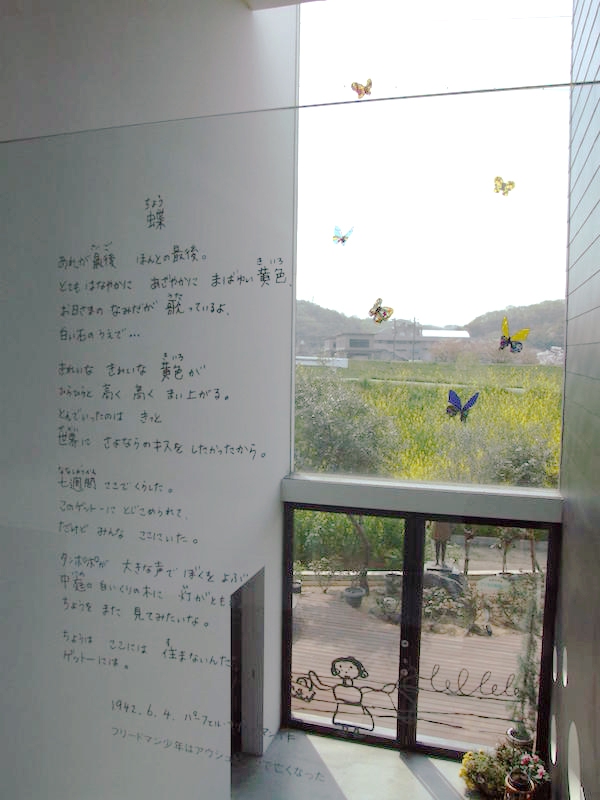 ちょう
蝶
あれが最後 ほんとの最後。
とても はなやかに あざやかに まばゆい 黄色、
お日さまの なみだが 歌っているよ、
白い石のうえで…
きれいな きれいな 黄色が
ひらひらと 高く 高く まい上がる。
とんでいったのは きっと
世界に さよならのキスを したかったから。
七週間 ここでくらした。
このゲットーに とじこめられて、
だけど みんな ここにいた。
タンポポが 大きな声で ぼくを よぶ
中庭の 白いくりの木に 灯がとも
ちょうを また 見てみたいな。
ちょうは ここには 住まないんだ
ゲットーには。
1942.6.4. パーフェル・
フリードマン少年はアウシュ で亡くなった